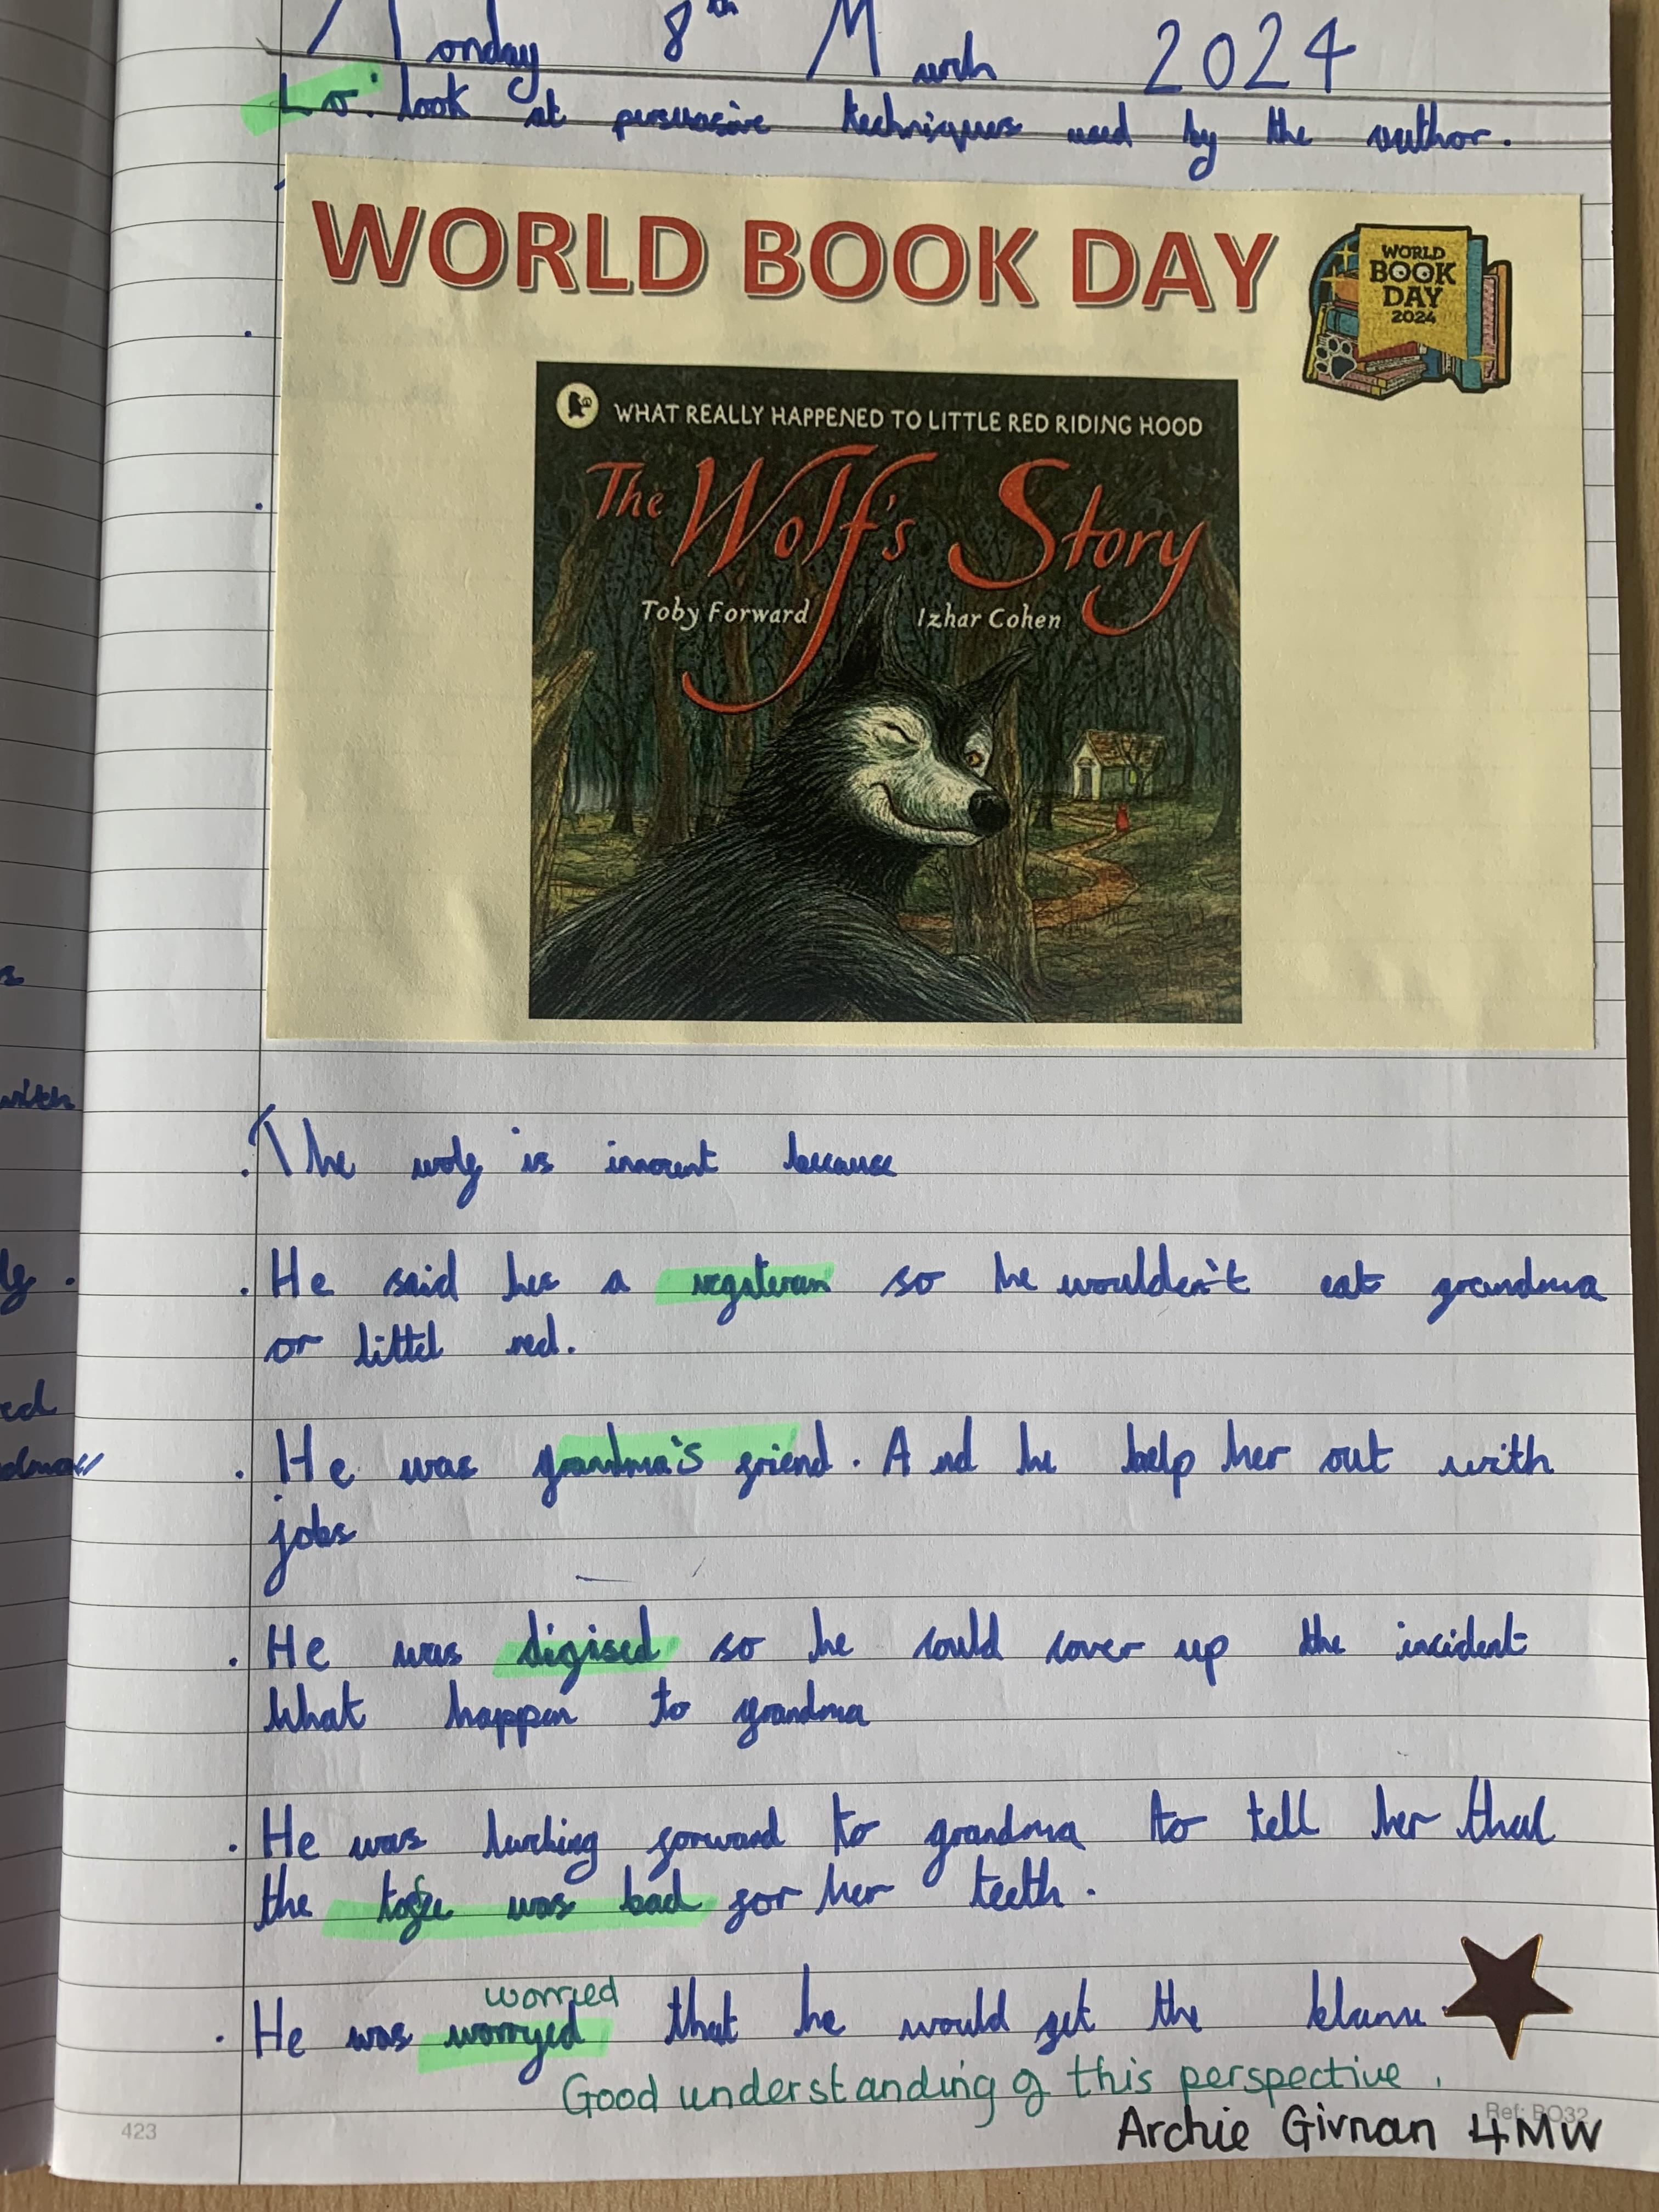 Monday 8th March 2024
Lo: look at persuasive techniques used by the author.
WORLD BOOK DAY
WORLD
BOOK
DAY
2024
WHAT REALLY HAPPENED TO LITTLE RED RIDING HOOD
The Wolf's Story
Toby Forward Izhar Cohen
. The wolf is innocent because
. He said hes a vegateran so he wouldern't eat grandma
or littel red.
. He was grandma's friend. And he help her out with
jobs
. He was digised so he could cover up the incident
What happen to grandma
. He was lurching forward to grandma to tell her that
the toffe was bad for her teeth.
worried
. He was worryed that he would get the blame
Good understanding of this perspective.
423
Ref: BO32
Archie Givnan 4MW
with
ed